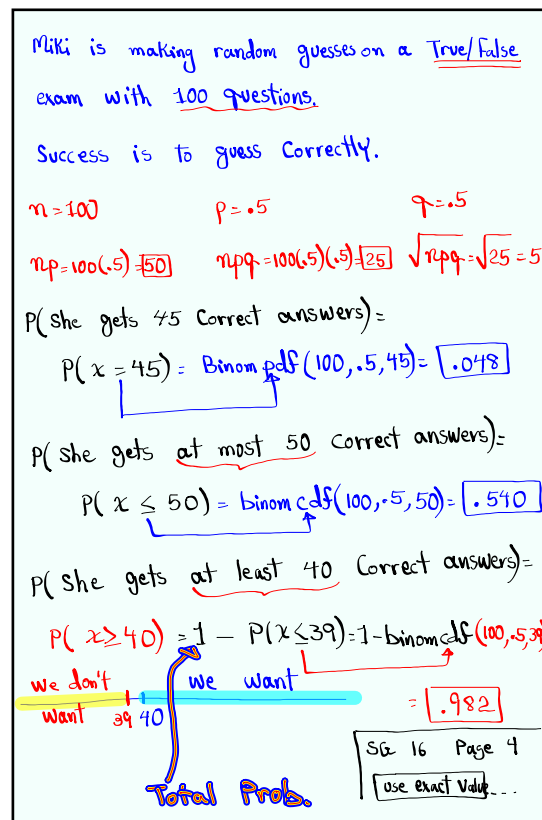 Miki is making random guesses on a True/False
exam with 100 questions.
Success is to guess Correctly.
n=100 p=.5 q=.5
np=100(.5)=50 npq=100(.5)(.5)=25 √npq=√25=5
P(She gets 45 Correct answers)=
P(x=45)= Binompdf(100,.5,45)= .048
P(She gets at most 50 Correct answers)=
P(x≤50)=binomcdf(100,.5,50)= .540
P(She gets at least 40 Correct answers)=
P(x≥40)=1-P(x≤39)=1-binomcdf(100,.5,39
we don't we want
want 39 40
= .982
Total Prob.
SG 16 Page 4
use exact value...